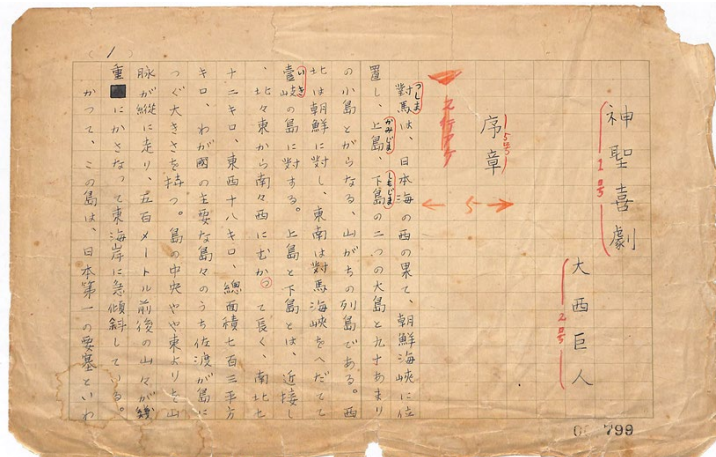 神聖喜劇
1号
大西巨人
2号
序章
5号
5
對馬は、日本海の西の果て、朝鮮海峡に位
つしま
置し、上島、下島の二つの大島と九十あまり
かみじま
しもじま
の小島とがらなる、山がちの列島である。西
北は朝鮮に対し、東南は對馬海峡をへだてて
壹岐の島に對する。上島と下島とは、近接し
いき
、北々東から南々西にむかつて長く、南北七
十二キロ、東西十八キロ、總面積七百三平方
キロ、わが國の主要な島々のうち佐渡が島に
つぐ大きさを持つ。島の中央やや東よりを山
脉が縱に走り、五百メートル前後の山々が幾
重にかさなって東海岸に急傾斜している。
かつて、この島は、日本第一の要塞といわ
(1)
799